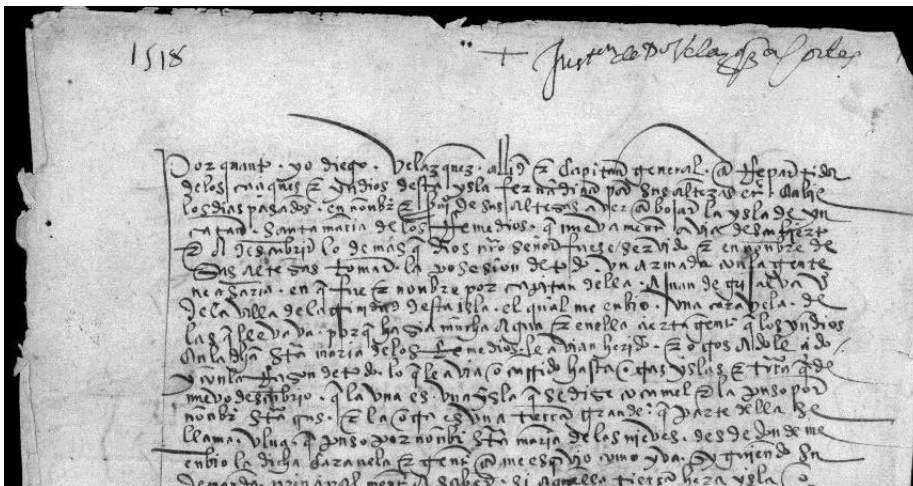 1518
+ Instruon de Do Velazqz a Cortes
Por quanto yo diego velazquez allcd e capitan general e Repartidor
de los caciques e yndios desta ysla fernandina por sus altezas etc enbie
los dias pasados en nonbre e de sus altezas a ver e bojar la ysla de yu
catan santa maria de los Remedios q nuevamente avia descubierto
e a descubrir lo demas q dios nro señor fuese servido e en nonbre de
sus altezas tomar la posesion de todo un armada con la gente
neçesaria en q fue e nonbre por capitan della a juan de grijalva vo
de la villa de la trinidad desta isla el qual me enbio una caravela de
las q llevava porq hazia mucha agua e en ella çierta gente q los yndios
en la dha sta maria de los Remedios le avian herido e otros adoleçido
y con la Razon de todo lo q le avia ocurrido hasta otras yslas e trra q de
nuevo descubrio q la una es una ysla q se dize coçumel e la puso por
nonbre sta cruz e la otra es una tierra grande q parte della se
llama ulua q puso por nonbre sta maria de las nieves desde donde me
enbio la dicha caravela e gente e me escrivio como yva syguiendo su
demanda prinçipalmente a saber si aquella tierra hera ysla o